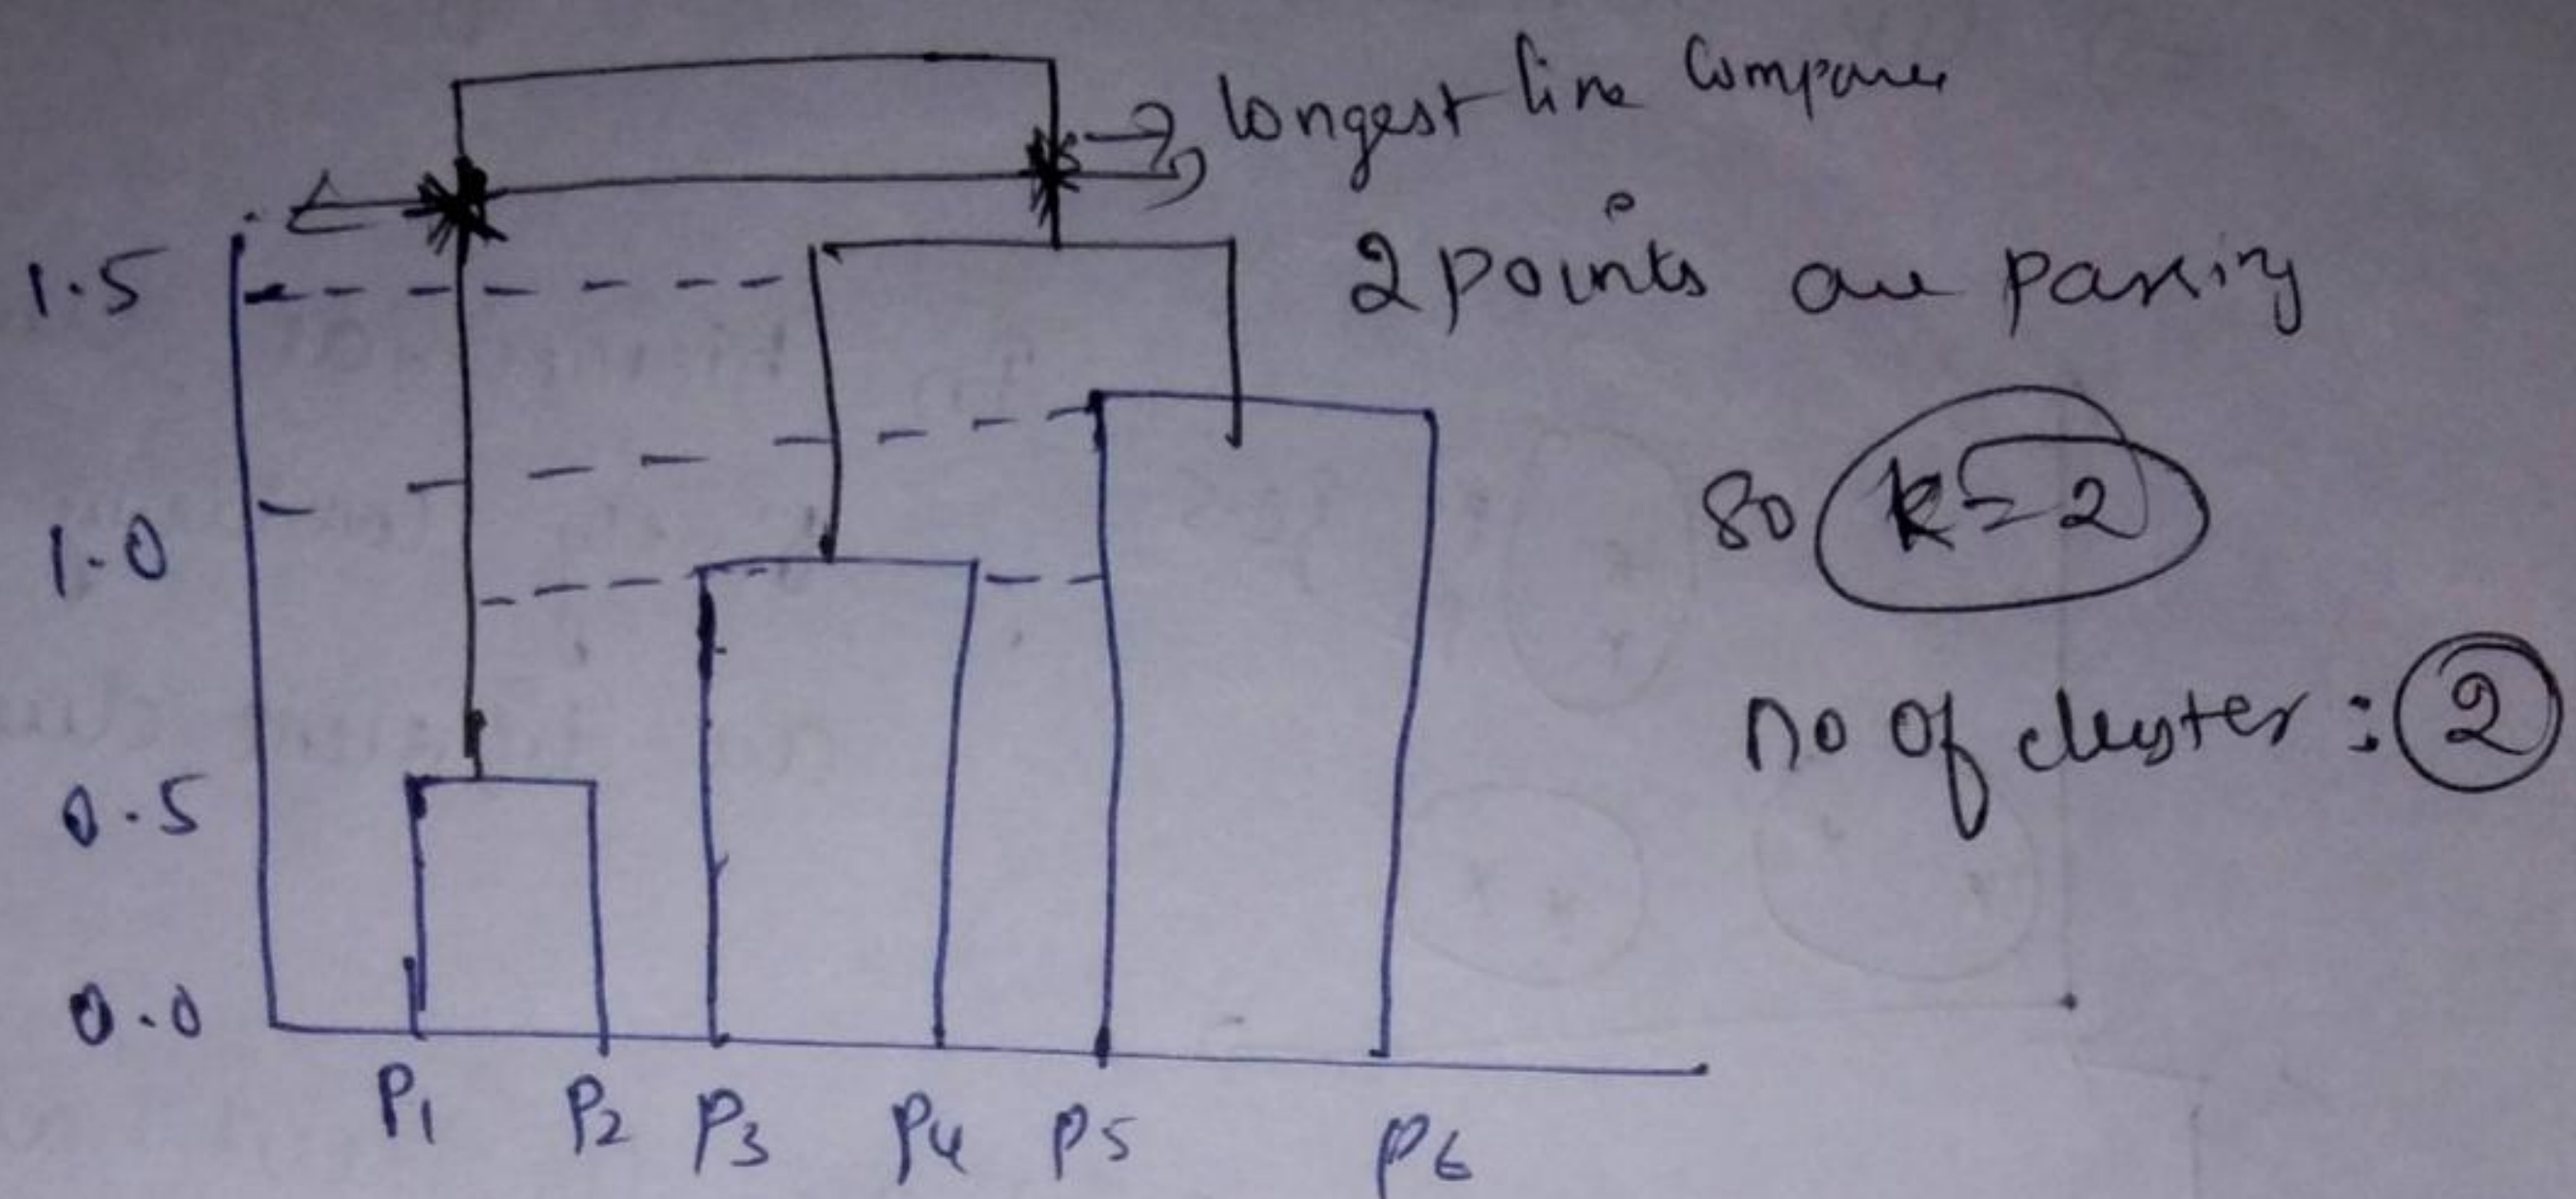 longest line Compare
1.5
2 points are passing
1.0
so k=2
0.5
no of cluster : 2
0.0
P1 P2 P3 P4 P5 P6